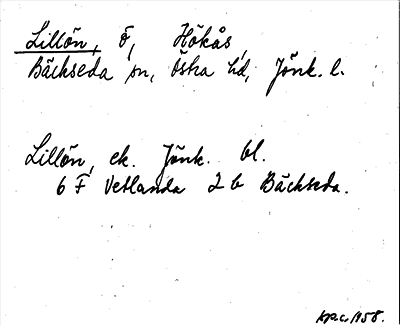 Lillön, ö, Hökås,
Bäckseda sn, Östra hd, Jönk. l.
Lillön, ek. Jönk. bl.
6 F Vetlanda 2 b Bäckseda.
1958.